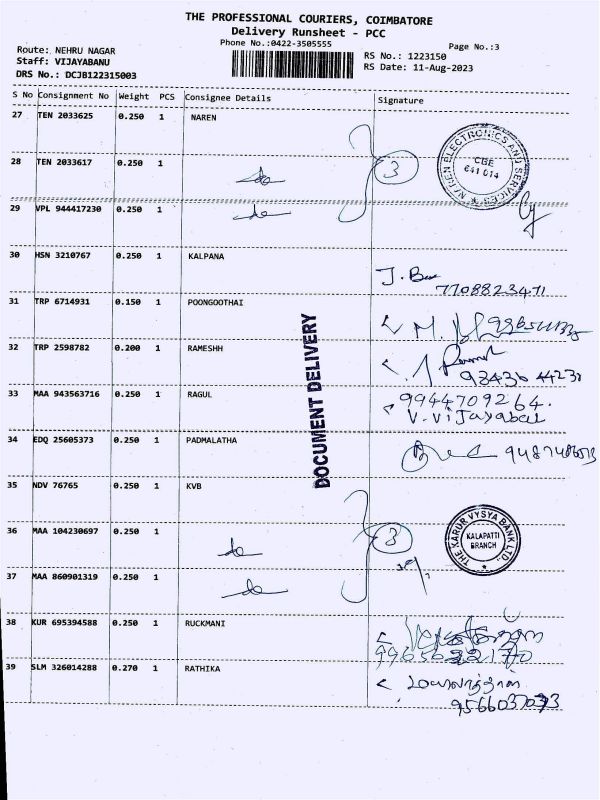 THE PROFESSIONAL COURIERS, COIMBATORE
Delivery Runsheet - PCC
Phone No.:0422-3505555
Page No.:3
Route: NEHRU NAGAR
Staff: VIJAYABANU
DRS No.: DCJB122315003
RS No.: 1223150
RS Date: 11-Aug-2023
S No Consignment No Weight PCS Consignee Details Signature
27 TEN 2033625 0.250 1 NAREN
28 TEN 2033617 0.250 1 do 3
ELECTRONICS AND SERVICES
CBE
641 014
29 VPL 944417230 0.250 1 do
30 HSN 3210767 0.250 1 KALPANA
7708823471
31 TRP 6714931 0.150 1 POONGOOTHAI
32 TRP 2598782 0.200 1 RAMESHH
33 MAA 943563716 0.250 1 RAGUL 9944709264.
V.Vijayabal
34 EDQ 25605373 0.250 1 PADMALATHA
DOCUMENT DELIVERY
35 NDV 76765 0.250 1 KVB
36 MAA 104230697 0.250 1 do 3
THE KARUR VYSYA BANK LTD.
KALAPATTI
BRANCH
37 MAA 860901319 0.250 1 do
38 KUR 695394588 0.250 1 RUCKMANI
39 SLM 326014288 0.270 1 RATHIKA